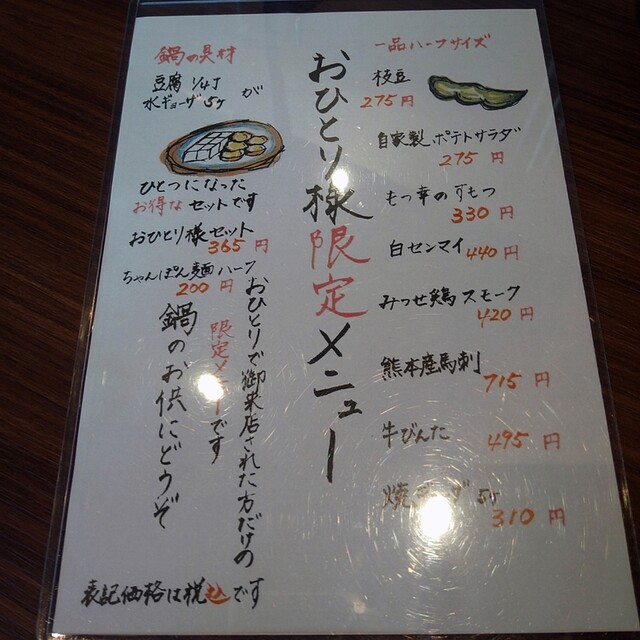 おひとり様限定メニュー
一品ハーフサイズ
枝豆
275円
自家製ポテトサラダ
275円
もつ幸のすもつ
330円
白センマイ 440円
みつせ鶏スモーク
420円
熊本産馬刺
715円
牛びんた 495円
焼ギョーザ5ヶ
310円
鍋の具材
豆腐 1/4丁
水ギョーザ5ヶ が
ひとつになった
お得なセットです
おひとり様セット
365円
ちゃんぽん麺ハーフ
200円
おひとりで御来店された方だけの
限定メニューです
鍋のお供にどうぞ
表記価格は税込です